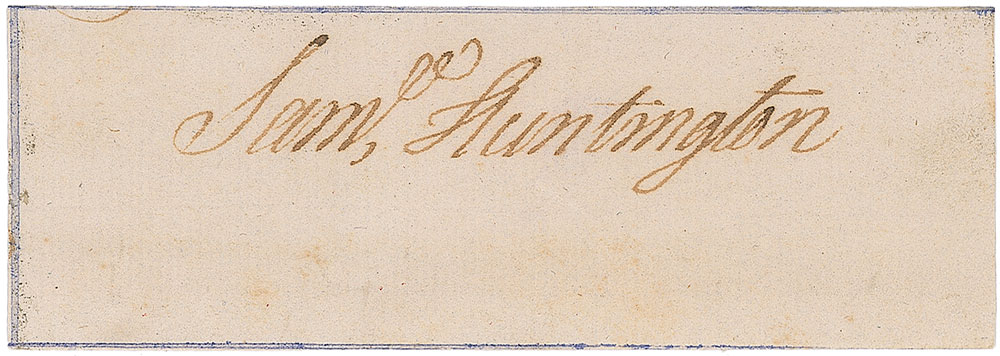 Saml, Huntington